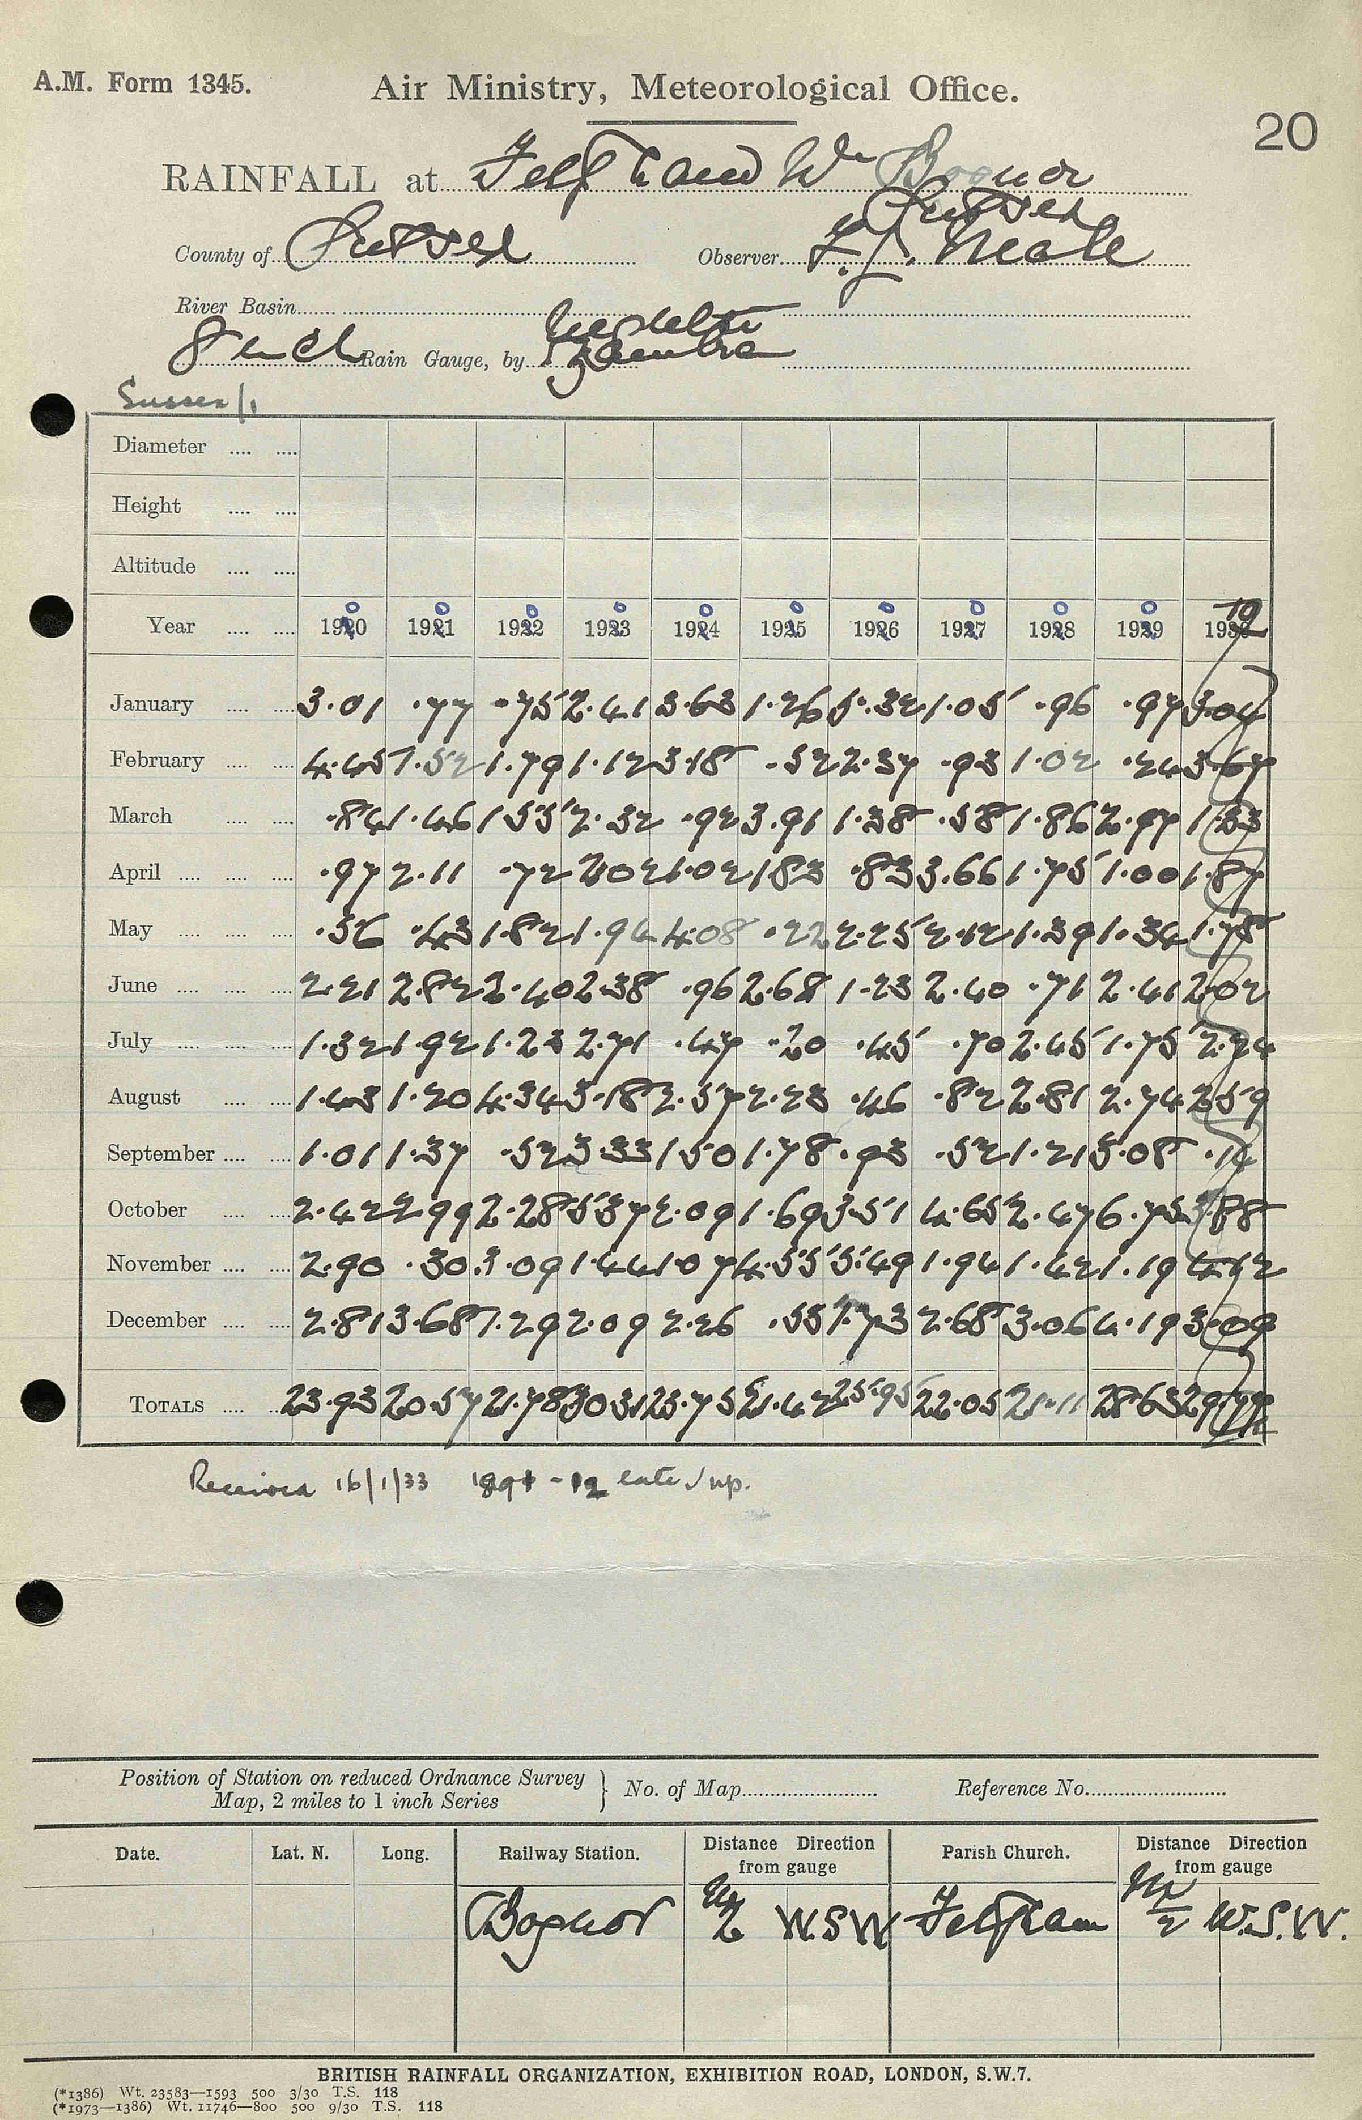 A.M. Form 1345.
Air Ministry, Meteorological Office.
20
RAINFALL at Felpham Nr Bognor
Sussex
County of Sussex Observer F. J. Neale
River Basin
8 inch Rain Gauge, by Negretti Zambra
Sussex/1
Diameter
Height
Altitude
0 0 0 0 0 0 0 0 0 0 10
Year 1920 1921 1922 1923 1924 1925 1926 1927 1928 1929 1930
January 3.01 .77 .75 2.41 3.63 1.26 5.32 1.05 .96 .97 3.04
February 4.45 1.52 1.79 1.12 3.18 .52 2.37 .93 1.02 .24 3.67
March .84 1.46 1.55 2.32 .92 3.91 1.38 .58 1.86 2.97 1.33
April .97 2.11 .72 2.02 1.02 1.83 .83 3.66 1.75 1.00 1.87
May .56 .43 1.82 1.94 4.08 .22 2.25 2.12 1.39 1.34 1.78
June 2.21 2.82 2.40 2.38 .96 2.68 1.23 2.40 .71 2.41 2.02
July 1.32 1.92 1.23 2.71 .47 .20 .45 .70 2.45 1.75 2.24
August 1.43 1.20 4.34 3.18 2.57 2.23 .46 .82 2.81 2.74 2.59
September 1.01 1.37 .52 3.33 1.50 1.78 .93 .52 1.21 3.08 .14
October 2.42 2.99 2.28 5.37 2.09 1.69 3.51 4.65 2.47 6.75 3.88
November 2.90 .30 3.09 1.44 1.07 4.55 5.49 1.94 1.42 1.19 4.12
December 2.81 3.68 1.29 2.09 2.26 .55 1.73 2.68 3.06 4.19 3.09
TOTALS 23.93 20.57 21.78 30.31 23.75 21.42 25.95 22.05 21.11 28.63 29.77
Received 16/1/33
Position of Station on reduced Ordnance Survey Map, 2 miles to 1 inch Series } No. of Map Reference No.
Date. Lat. N. Long. Railway Station. Distance Direction from gauge Parish Church. Distance Direction from gauge
Bognor W.S.W Felpham W.S.W.
BRITISH RAINFALL ORGANIZATION, EXHIBITION ROAD, LONDON, S.W.7.
(*1386) Wt. 23583—1593 500 3/30 T.S. 118
(*1973—1386) Wt. 11746—800 500 9/30 T.S. 118